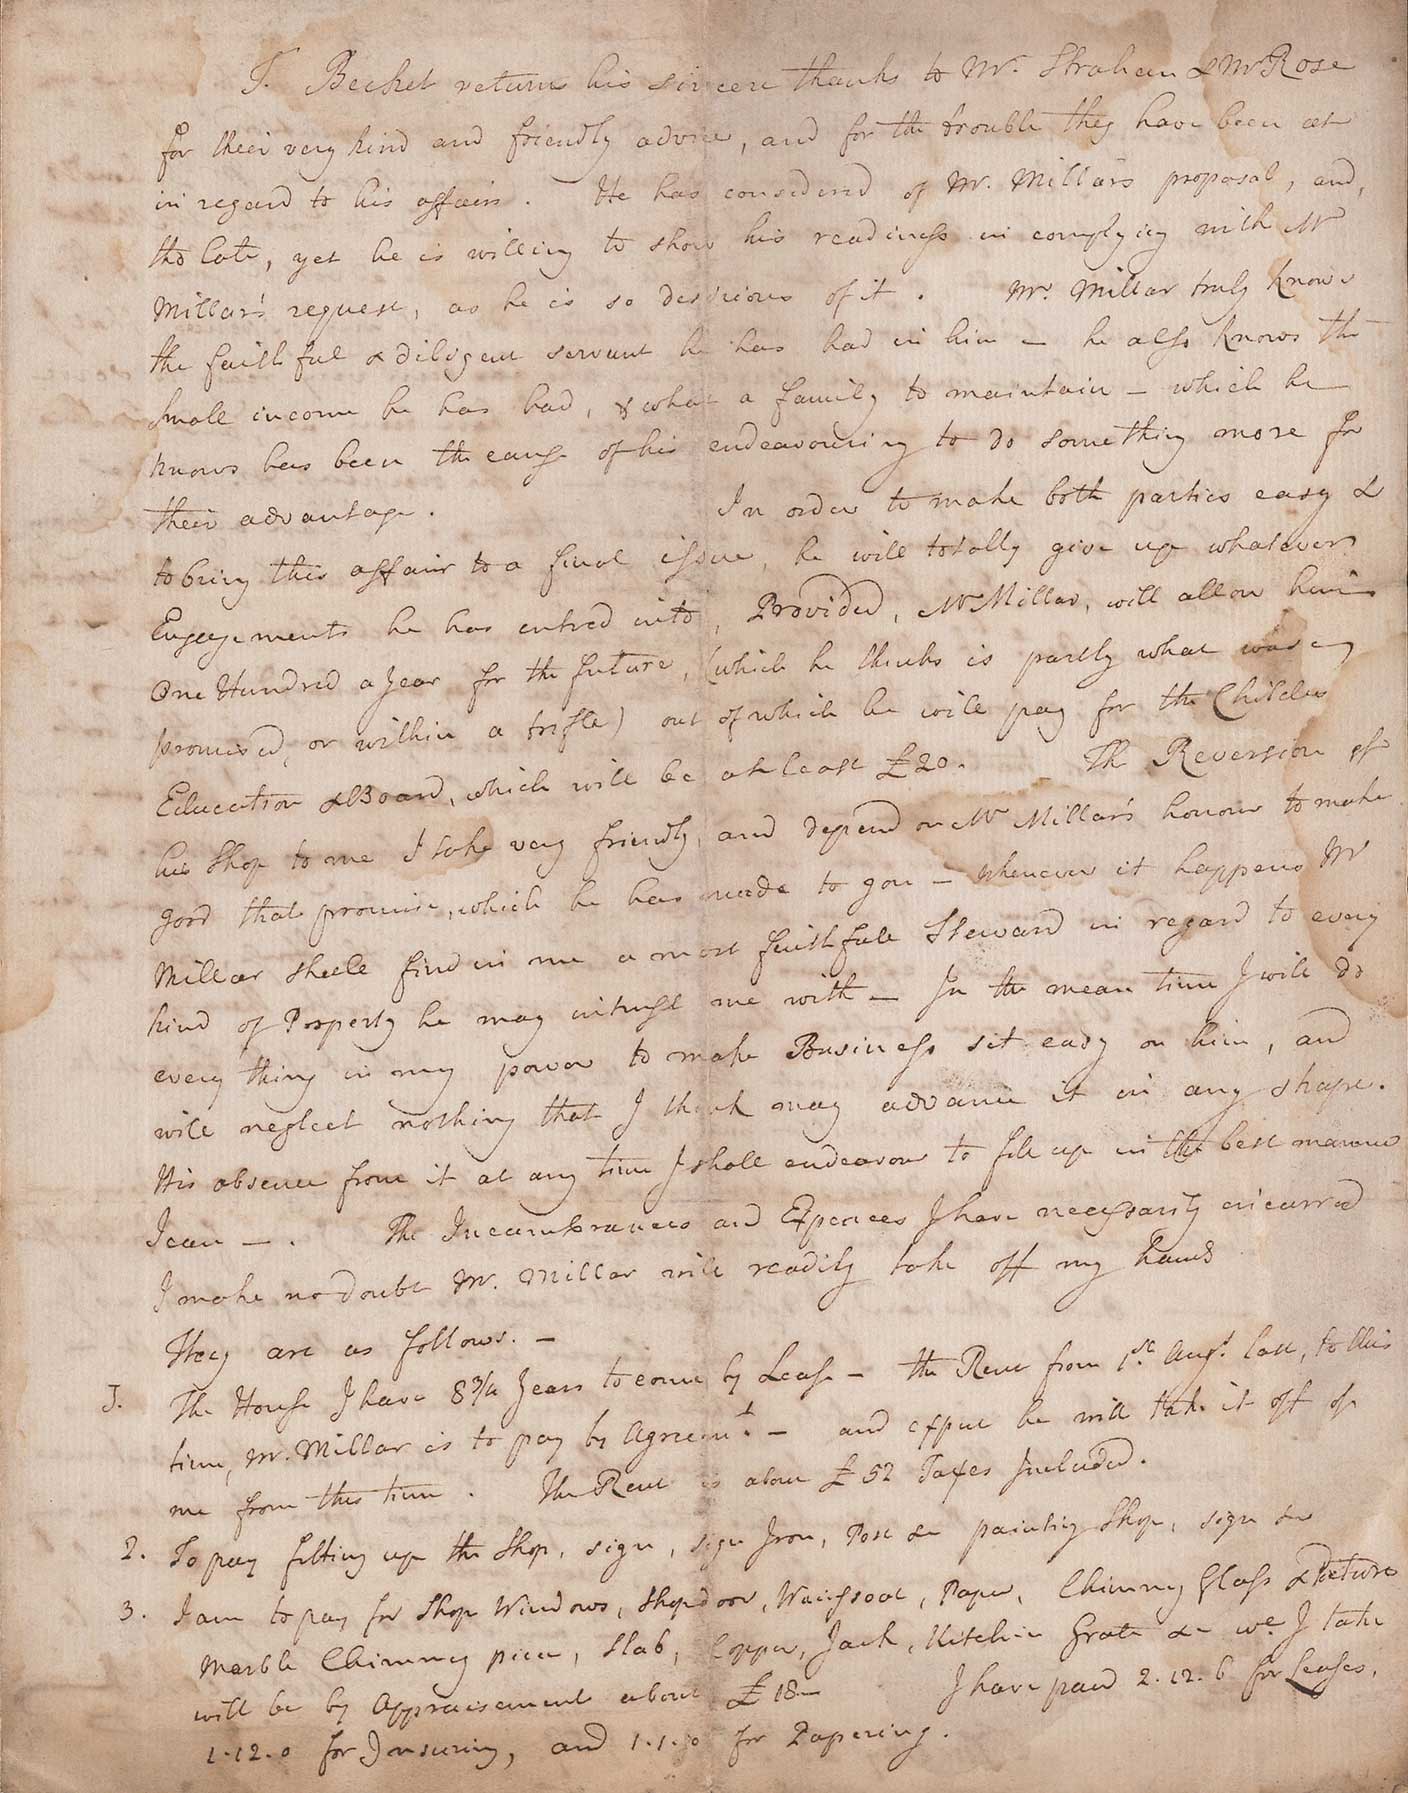 T. Becket returns his sincere thanks to Mr. Strahan & Mr Rose
for their very kind and friendly advice, and for the trouble they have been at
in regard to his affairs. He has considered of Mr. Millar's proposal, and,
tho late, yet he is willing to show his readiness in complying with Mr
Millar's request, as he is so desirious of it. Mr. Millar truly knows
the faithful & diligent servant he has had in him – he also knows the
small income he has had, & what a family to maintain – which he
knows has been the cause of his endeavouring to do something more for
their advantage. In order to make both parties easy &
to bring this affair to a final issue, he will totally give up whatever
Engagements he has entred into, Provided, Mr Millar, will allow him
One Hundred a year for the future, (which he thinks is partly what was
promised, or within a trifle) out of which he will pay for the Childs
Education & Board, which will be at least £20. The Reversion of
his Shop to me I take very friendly, and depend on Mr Millar's honour to make
good that promise, which he has made to you – whenever it happens Mr
Millar shall find in me a most faithfull Steward in regard to every
kind of Property he may intrust me with – In the mean time I will do
every thing in my power to make Business sit easy on him, and
will neglect nothing that I think may advance it in any shape.
His absence from it at any time I shall endeavour to fill up in the best manner
I can –. The Incumbrances and Expences I have necessarily incurred
I make no doubt Mr. Millar will readily take off my hands
They are as follows. –
1. The House I have 8 3/4 Years to come by Lease – the Rent from 1st. Augt. last, to this
time, Mr. Millar is to pay by Agreemt. – and expect he will take it off of
me from this time. The Rent is about £52 Taxes Included.
2. To pay fitting up the Shop, sign, sign Iron, Post &c painting Shop, sign &c
3. I am to pay for Shop Windows, Shop door, Wainscot, Paper, Chimney Glass & Picture
Marble Chimney piece, Slab, Copper, Jack, Kitchin Grate &c wch. I take
will be by Appraisement about £18– I have paid 2.12.6 for Leases,
1.12.0 for Insuring, and 1.1.0 for Papering.